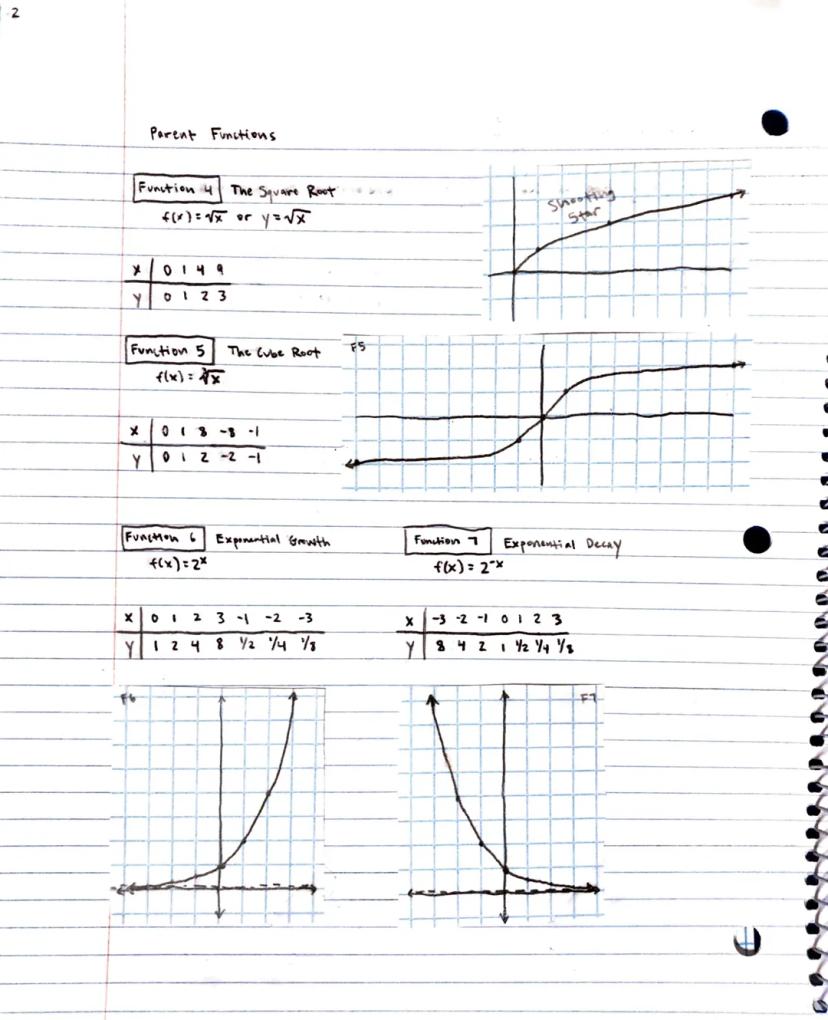 2
Parent Functions
Function 4 The Square Root
f(x) = √x or y = √x
Shooting
Star
X | 0 1 4 9
Y | 0 1 2 3
Function 5 The Cube Root
F5
f(x) = ∛x
X | 0 1 8 -8 -1
Y | 0 1 2 -2 -1
Function 6 Exponential Growth
f(x) = 2ˣ
X | 0 1 2 3 -1 -2 -3
Y | 1 2 4 8 1/2 1/4 1/8
Function 7 Exponential Decay
f(x) = 2⁻ˣ
X | -3 -2 -1 0 1 2 3
Y | 8 4 2 1 1/2 1/4 1/8
F6
F7